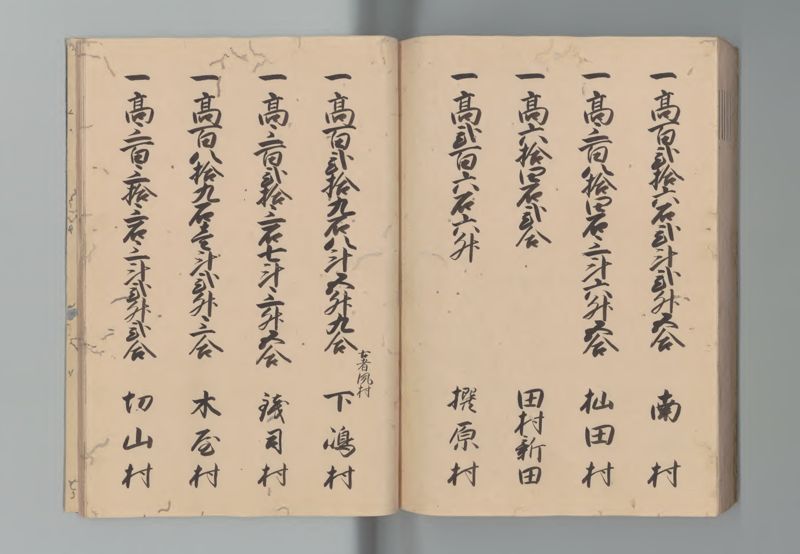 一高百弐拾六石弐斗弐升五合 南村
一高三百八拾四石三斗六升五合 杣田村
一高六拾四石弐合 田村新田
一高弐百六石六升 撰原村
一高百弐拾九石八斗五升九合 下嶋村
古者夙村
一高三百弐拾三石七斗三升五合 銭司村
一高百八拾九石壱斗弐升三合 木屋村
一高三百三拾三石三斗弐升弐合 切山村